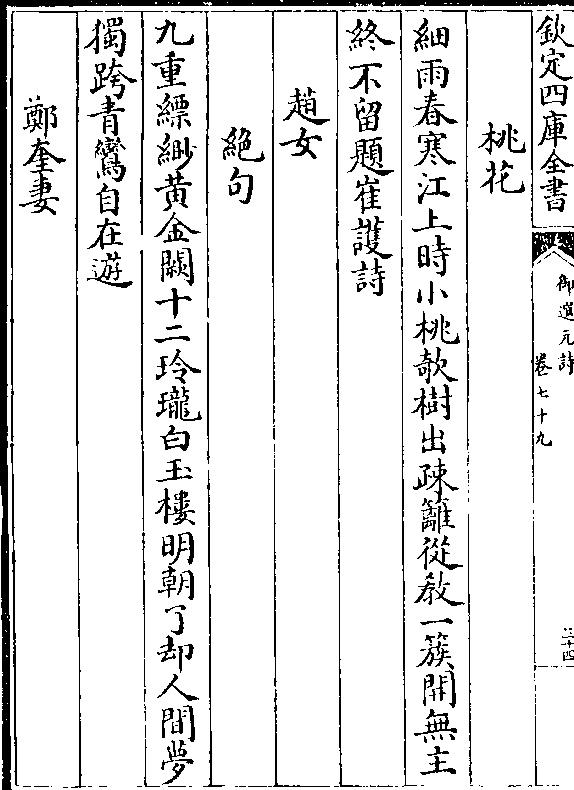 欽定四庫全書
御選元詩
卷七十九
三十四
桃花
細雨春寒江上時小桃欹樹出疎籬從教一簇開無主
終不留題崔護詩
趙女
絶句
九重縹緲黄金闕十二玲瓏白玉樓明朝了却人間夢
獨跨青鸞自在遊
鄭奎妻